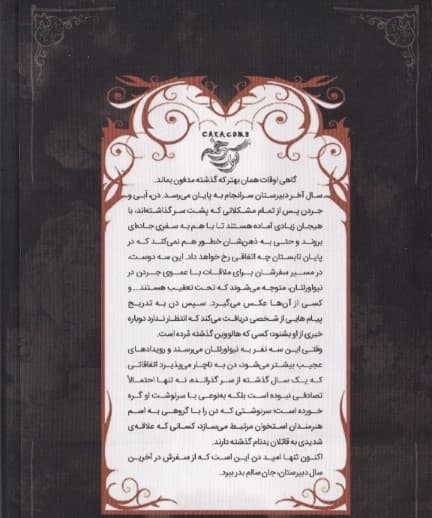 CATACOMB
گاهی اوقات همان بهتر که گذشته مدفون بماند.
سال آخر دبیرستان سرانجام به پایان می‌رسد. دن، آبی و
جردن پس از تمام مشکلاتی که پشت سر گذاشته‌اند، با
هیجان زیادی آماده هستند تا با هم به سفری جاده‌ای
بروند و حتی به ذهن‌شان خطور هم نمی‌کند که در
پایان تابستان چه اتفاقی رخ خواهد داد. این سه دوست،
در مسیر سفرشان برای ملاقات با عموی جردن در
نیواورلئان، متوجه می‌شوند که تحت تعقیب هستند... و
کسی از آن‌ها عکس می‌گیرد. سپس دن به تدریج
پیام هایی از شخصی دریافت می‌کند که انتظار ندارد دوباره
خبری از او بشنود؛ کسی که هالووین گذشته مُرده است.
وقتی این سه نفر به نیواورلئان می‌رسند و رویدادهای
عجیب بیشتر می‌شود، دن به ناچار می‌پذیرد اتفاقاتی
که یک سال گذشته از سر گذرانده، نه تنها احتمالاً
تصادفی نبوده است بلکه به‌نوعی با سرنوشت او گره
خورده است؛ سرنوشتی که دن را با گروهی به اسم
هنرمندان استخوان مرتبط می‌سازد، کسانی که علاقه‌ی
شدیدی به قاتلان بدنام گذشته دارند.
اکنون تنها امید دن این است که از سفرش در آخرین
سال دبیرستان، جان سالم بدر ببرد.